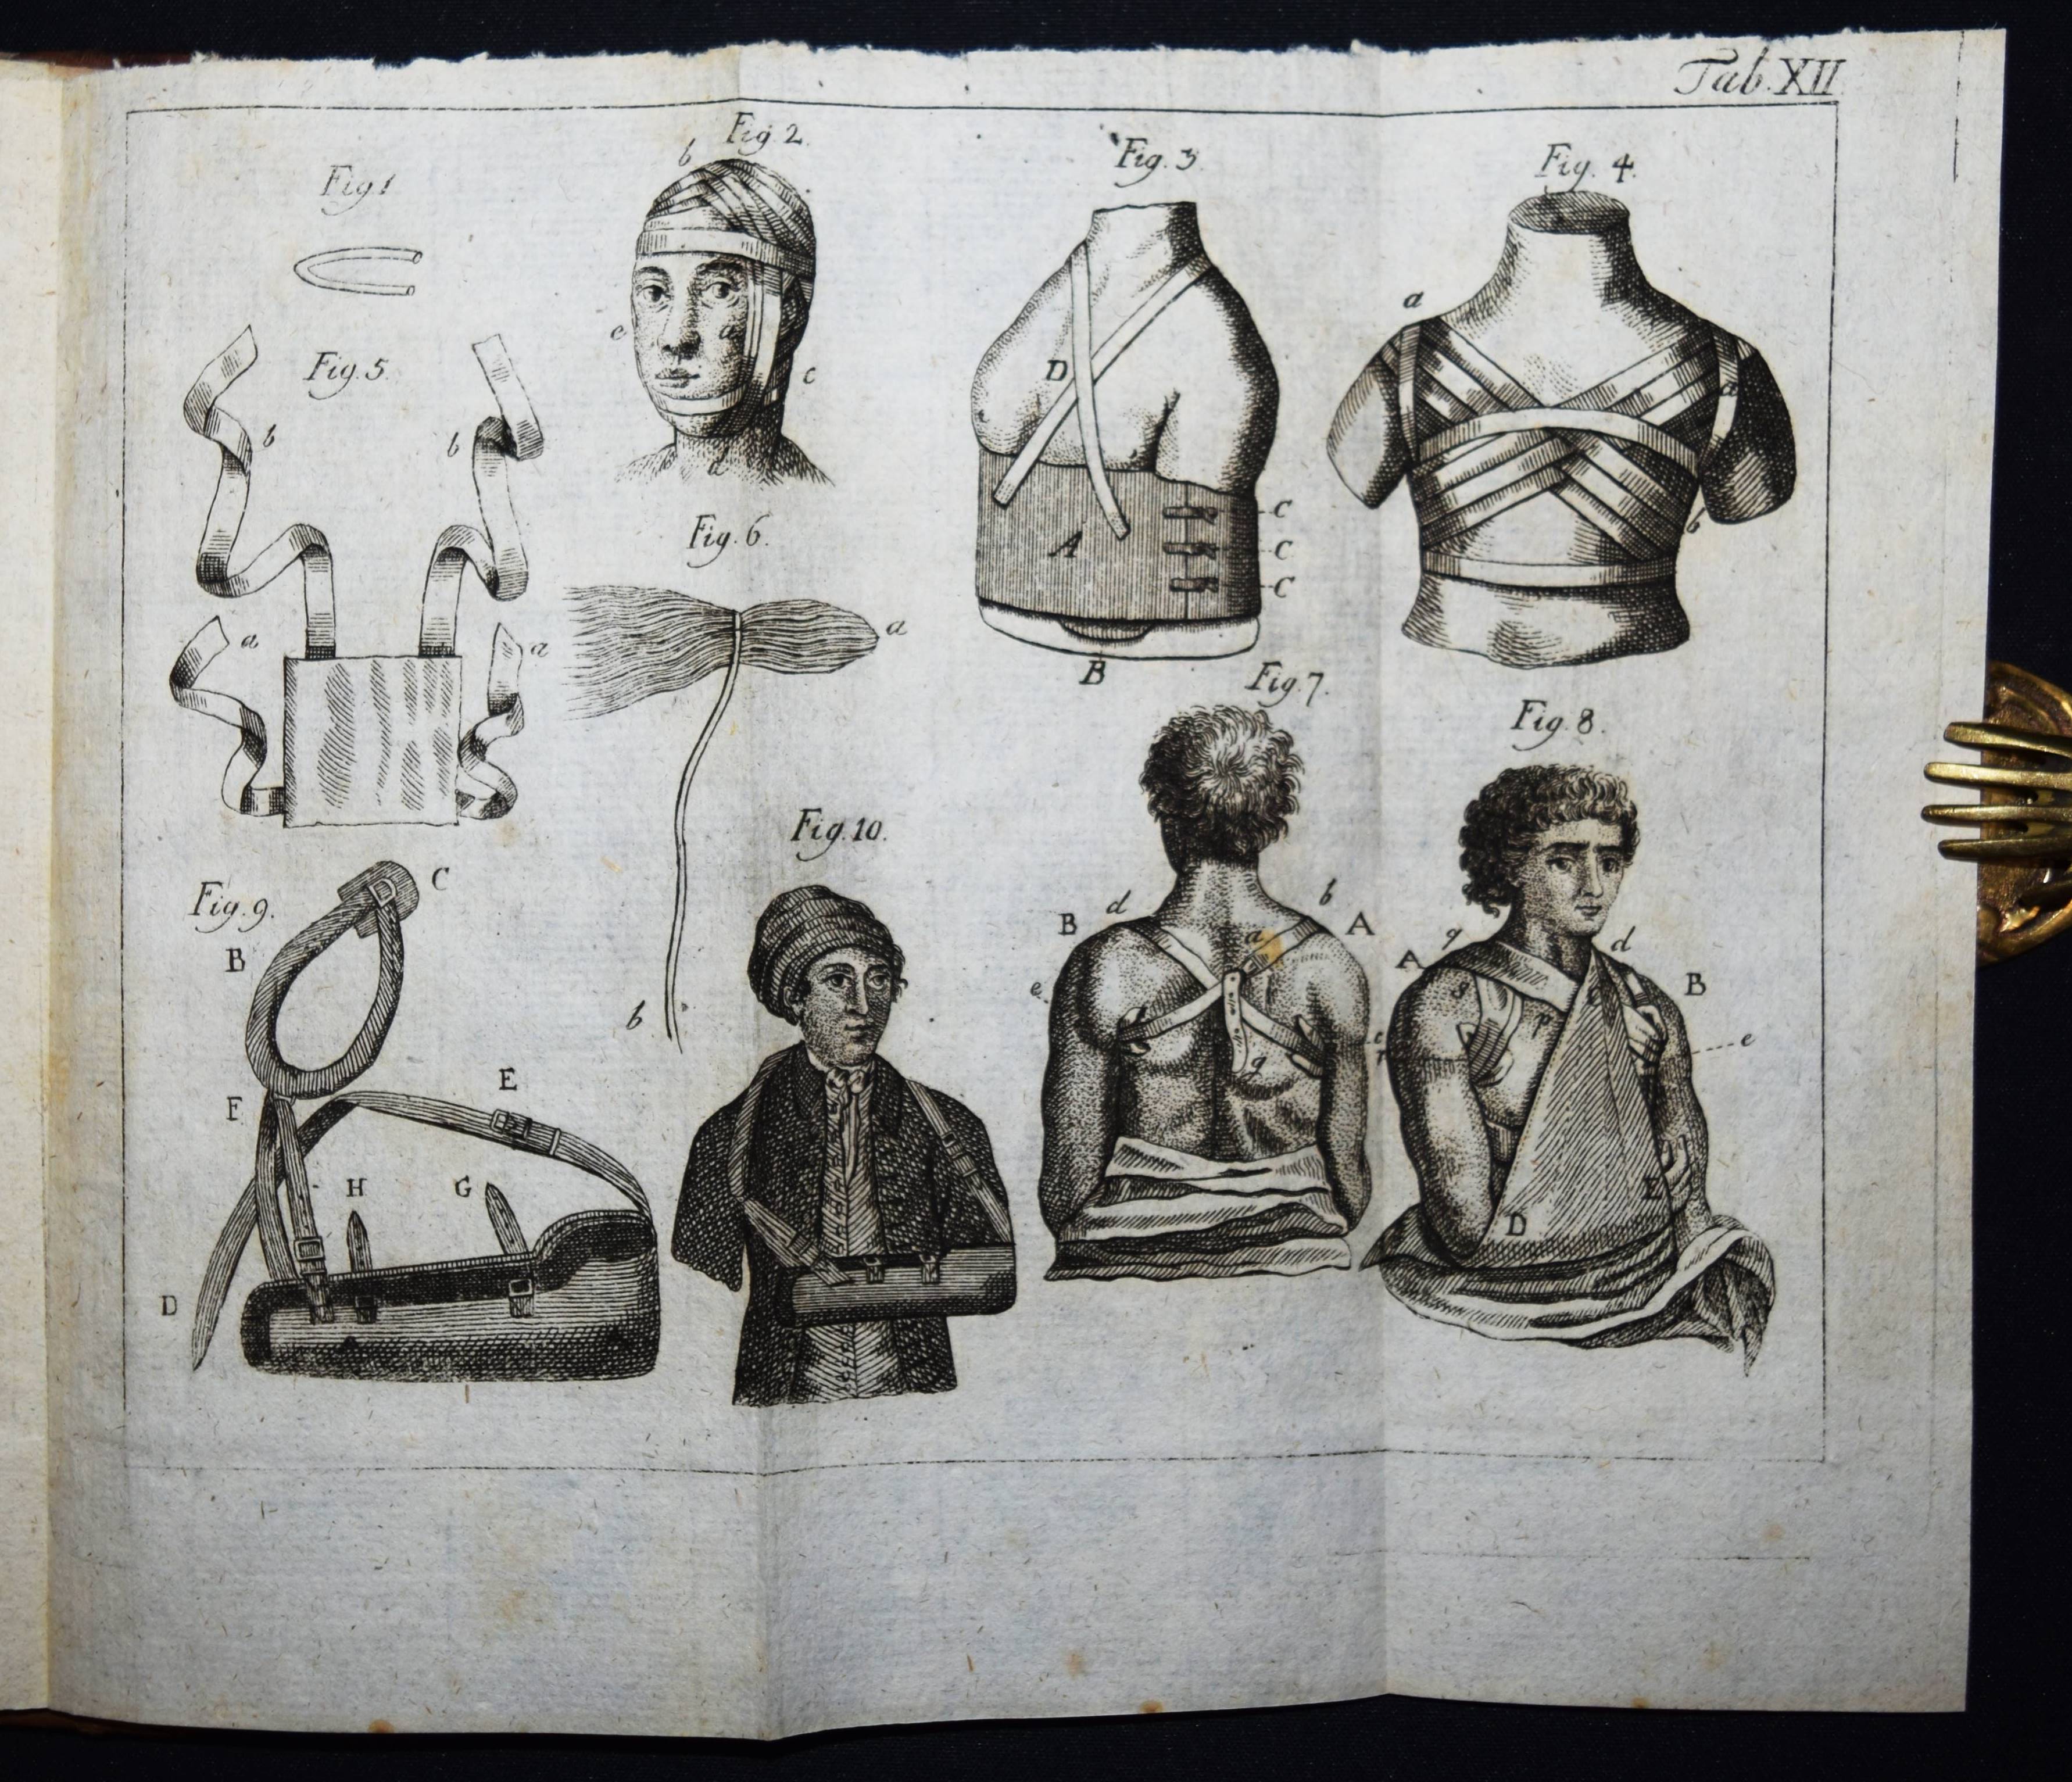 Tab. XII
Fig 1
Fig. 2.
b
a
c
c
d
Fig. 3
D
A
C
C
C
B
Fig. 4.
a
a
b
Fig. 5
b
b
a
a
Fig. 6.
a
b
Fig. 7.
B
d
b
A
a
e
c
g
Fig. 8.
q
A
d
B
g
p
r
e
E
D
Fig. 9.
C
B
F
E
H
G
D
A
Fig. 10.